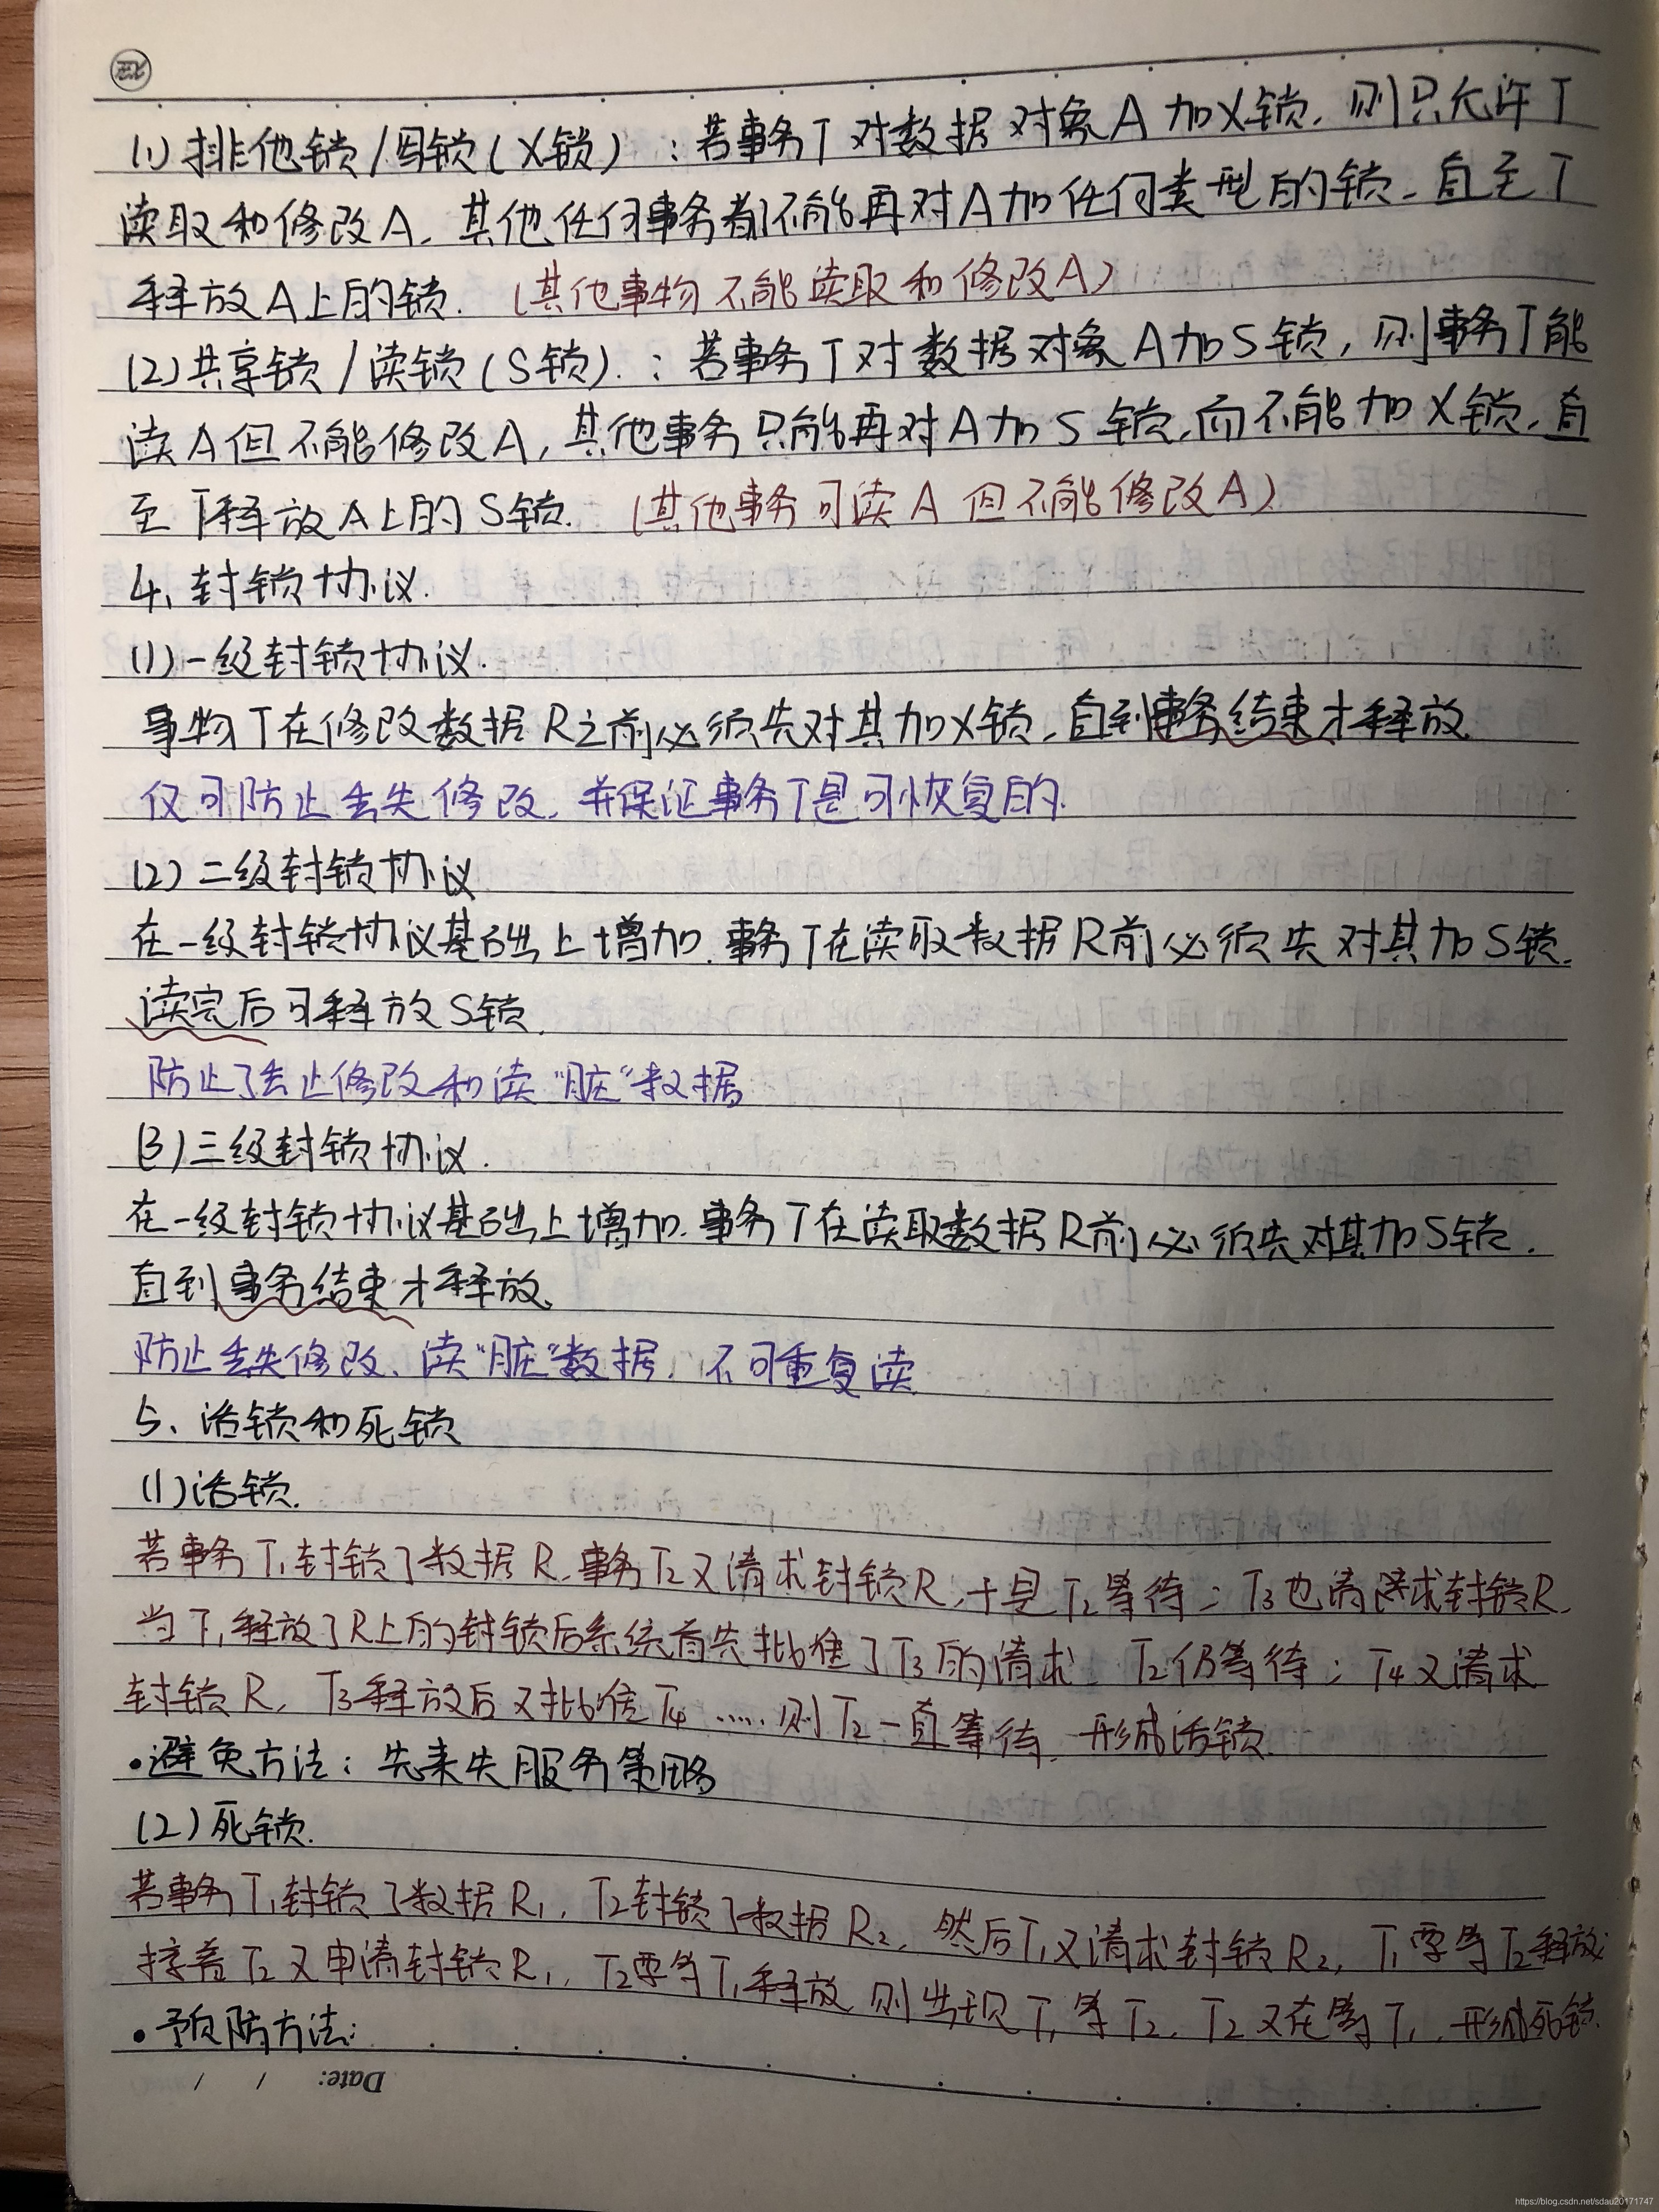 (1) 排他锁/写锁(X锁)：若事务T对数据对象A加X锁，则只允许T
读取和修改A，其他任何事务都不能再对A加任何类型的锁，直至T
释放A上的锁. (其他事物不能读取和修改A)
(2)共享锁/读锁(S锁).：若事务T对数据对象A加S锁，则事务T能
读A但不能修改A，其他事务只能再对A加S锁，而不能加X锁，直
至T释放A上的S锁. (其他事务可读A但不能修改A)
4、封锁协议.
(1)一级封锁协议.
事物T在修改数据R之前必须先对其加X锁，直到事务结束才释放
仅可防止丢失修改，并保证事务T是可恢复的.
(2)二级封锁协议
在一级封锁协议基础上增加，事务T在读取数据R前必须先对其加S锁.
读完后可释放S锁.
防止了丢止修改和读“脏”数据
(3)三级封锁协议.
在一级封锁协议基础上增加.事务T在读取数据R前必须先对其加S锁.
直到事务结束才释放.
防止丢失修改、读“脏”数据，不可重复读.
5、活锁和死锁
(1)活锁.
若事务T1封锁了数据R,事务T2又请求封锁R,于是T2等待；T3也请求封锁R.
当T1释放了R上的封锁后系统首先批准了T3的请求，T2仍等待；T4又请求
封锁R，T3释放后又批准T4……则T2一直等待，形成活锁.
•避免方法：先来先服务策略
(2)死锁.
若事务T1封锁了数据R1，T2封锁了数据R2，然后T1又请求封锁R2，T1要等T2释放;
接着T2又申请封锁R1，T2要等T1释放 则出现T1等T2，T2又在等T1，形成死锁.
•预防方法：
Date: / /
https://blog.csdn.net/sdau20171747